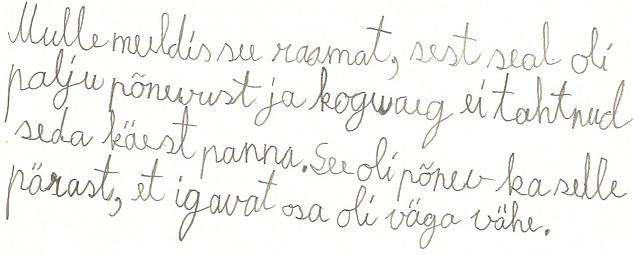 Mulle meeldis see raamat, sest seal oli
palju põnevust ja kogu aeg ei tahtnud
seda käest panna. See oli põnev ka selle
pärast, et igavat osa oli väga vähe.